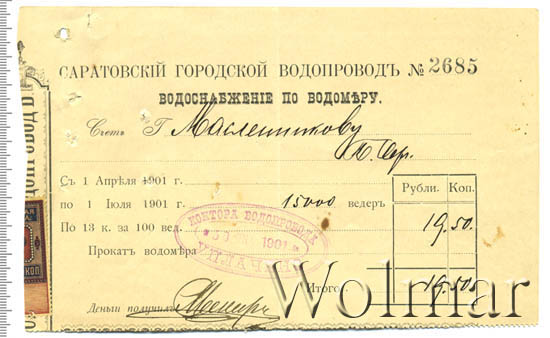 САРАТОВСКІЙ ГОРОДСКОЙ ВОДОПРОВОДЪ № 2685
ВОДОСНАБЖЕНІЕ ПО ВОДОМѢРУ.
Счетъ Г. Масленникову
Рубли. Коп.
Съ 1 Апрѣля 1901 г.
по 1 Іюля 1901 г. 15000 ведеръ
По 13 к. за 100 вед. 19.50.
Прокатъ водомѣра
КОНТОРА ВОДОПРОВОДА
1901
УПЛАЧЕНО
Итого
Деньги получилъ
Wolmar